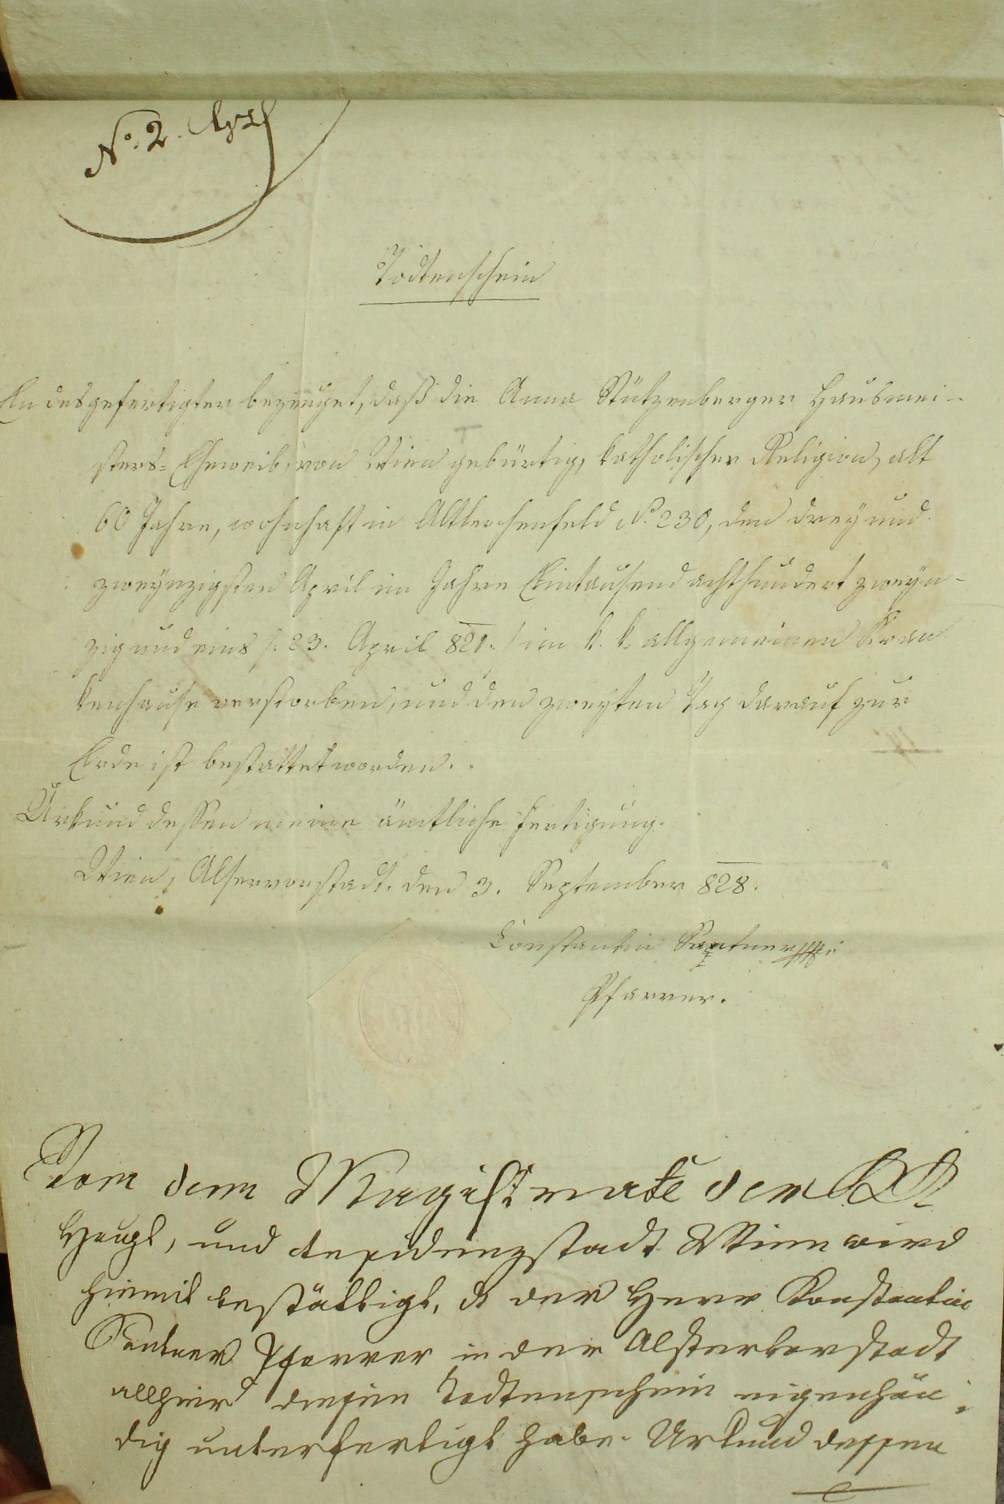 No. 2.
Todtenschein
Endesgefertigter bezeuget, daß die Anna Stützenberger Hausmei-
sters-Eheweib, von Wien gebürtig, katholischer Religion, alt
60 Jahre, wohnhaft in Altlerchenfeld No. 230, den drey und
zweynzigsten April im Jahre Eintausend achthundert zweyn-
zig und eins /: 23. April 821. :/ im k. k. allgemeinen Kran
kenhause verstorben, und den zweyten Tag darauf zur
Erde ist bestattet worden.
Urkund dessen meine ämtliche Fertigung.
Wien, Alservorstadt. den 3. September 828.
Constantin Santner
Pfarrer.
Vom dem Magistrate der KK
Haupt, und Residenzstadt Wien wird
hiemit bestättigt, ds der Herr Konstantin
Santner Pfarrer in der Alservorstadt
allhier diesen Todtenschein eigenhän
dig unterfertigt habe. Urkund dessen